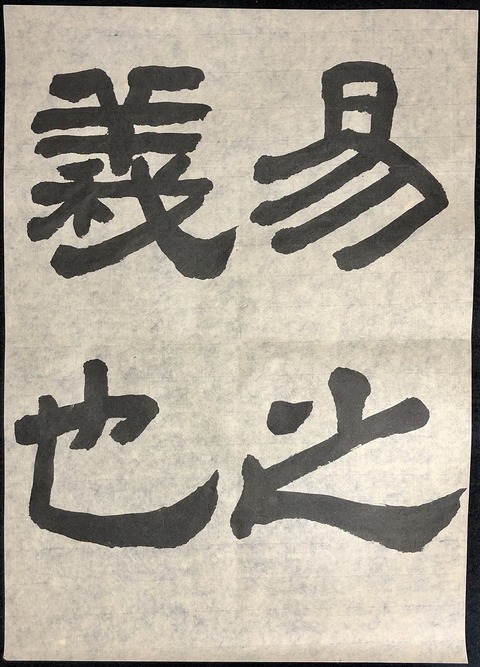 易之
義也